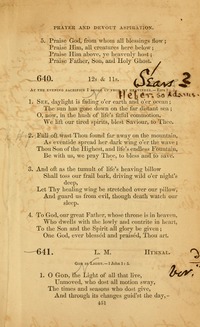 PRAYER AND DEVOUT ASPIRATION.
5. Praise God, from whom all blessings flow;
Praise Him, all creatures here below;
Praise Him above, ye heavenly host;
Praise Father, Son, and Holy Ghost.
640. 12s & 11s.
Sears 3
Helen
1. SEE, daylight is fading o'er earth and o'er ocean;
The sun has gone down on the far distant sea;
O, now, in the hush of life's fitful commotion,
We lift our tired spirits, blest Saviour, to Thee.
2. Full oft wast Thou found far away on the mountain,
As eventide spread her dark wing o'er the wave;
Thou Son of the Highest, and life's endless Fountain,
Be with us, we pray Thee, to bless and to save.
3. And oft as the tumult of life's heaving billow
Shall toss our frail bark, driving wild o'er night's
deep,
Let Thy healing wing be stretched over our pillow,
And guard us from evil, though death watch our
sleep.
4. To God, our great Father, whose throne is in heaven,
Who dwells with the lowly and contrite in heart,
To the Son and the Spirit all glory be given;
One God, ever blessed and praised, Thou art.
641. L. M. HYMNAL.
GOD IS LIGHT.—1 John 1: 5.
1. O GOD, the Light of all that live,
Unmoved, who dost all motion sway,
The times and seasons who dost give,
And through its changes guid'st the day,—
451